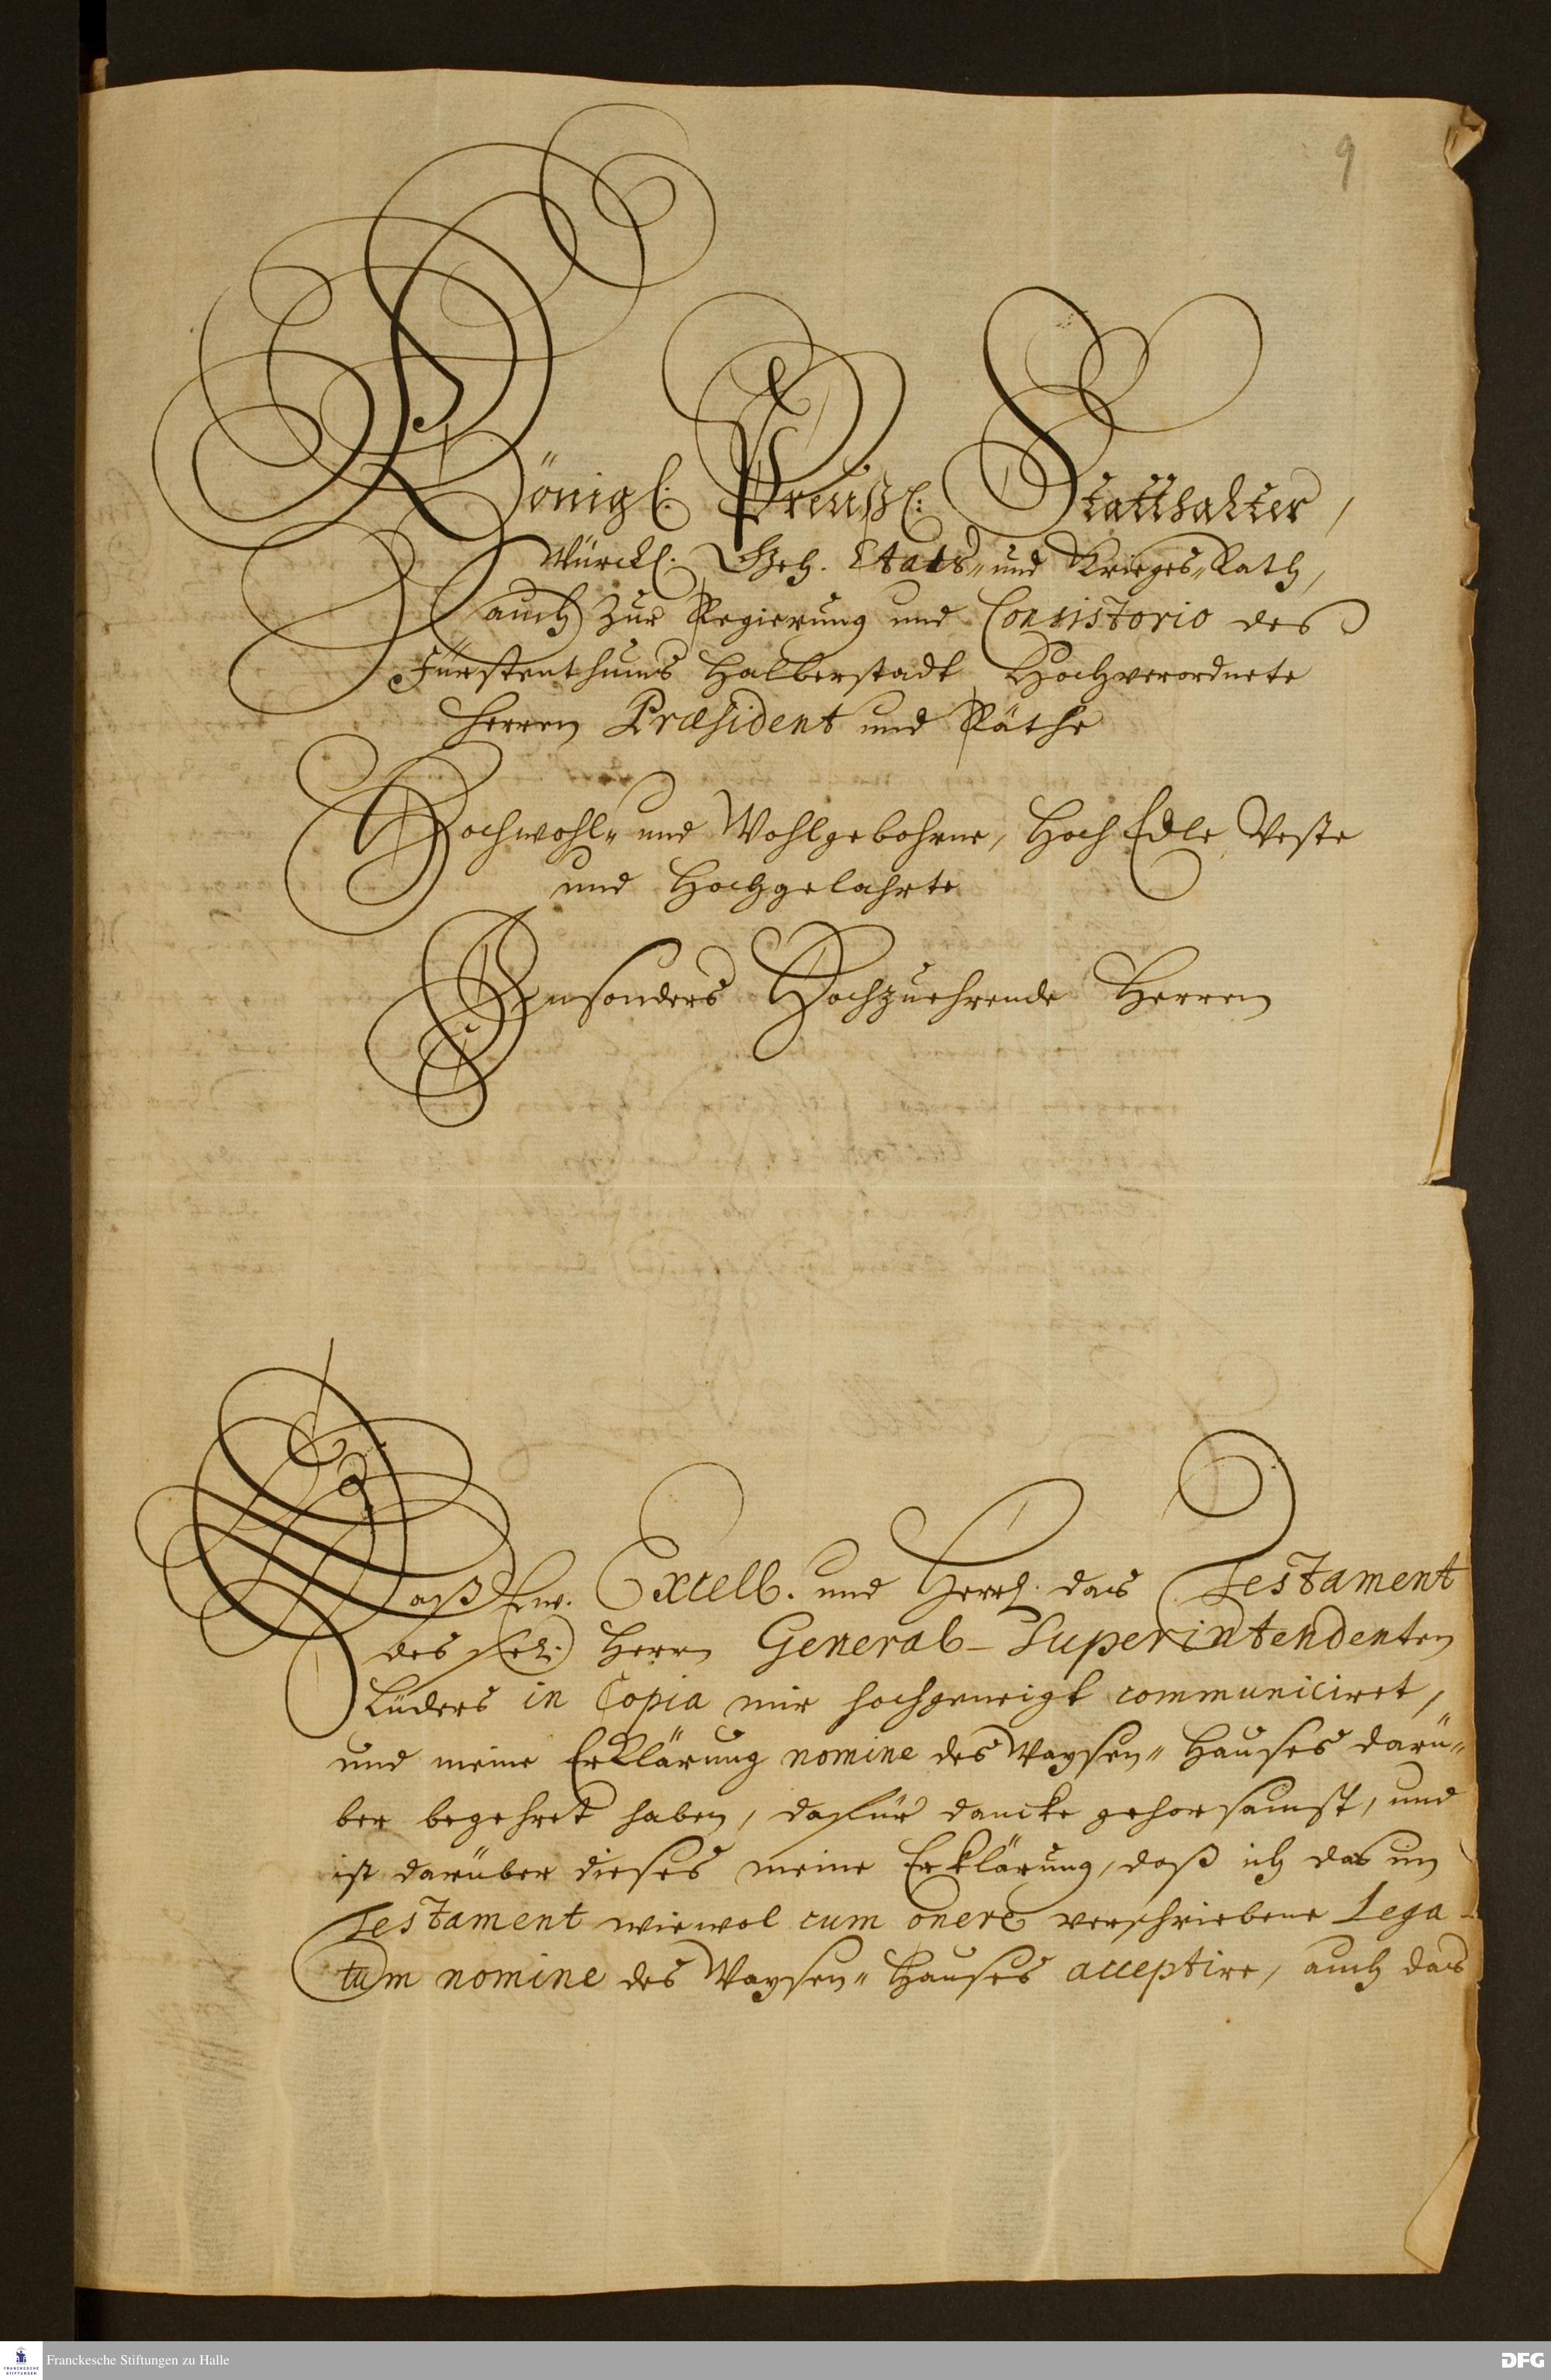 9
Königl. Preußl. Statthalter,
Würckl. Geh. Etats- und Krieges-Rath,
auch zur Regierung und Consistorio des
Fürstenthums Halberstadt Hochverordnete
Herren Præsident und Räthe
Hochwohl- und Wohlgebohrne, Hoch Edle, Veste
und Hochgelahrte
Insonders Hochzuehrende Herren
Daß Ew. Excell. und Herrl. das Testament
des sel. Herrn General-Superintendenten
Lüders in Copia mir hochgeneigt communiciret,
und meine Erklärung nomine des Waysen-Hauses darü-
ber begehret haben, dafür dancke gehorsamst, und
ist darüber dieses meine Erklärung, daß ich das im
Testament wiewol cum onere verschriebene Lega-
tum nomine des Waysen-Hauses acceptire, auch das
Franckesche Stiftungen zu Halle
FRANCKESCHE STIFTUNGEN
DFG